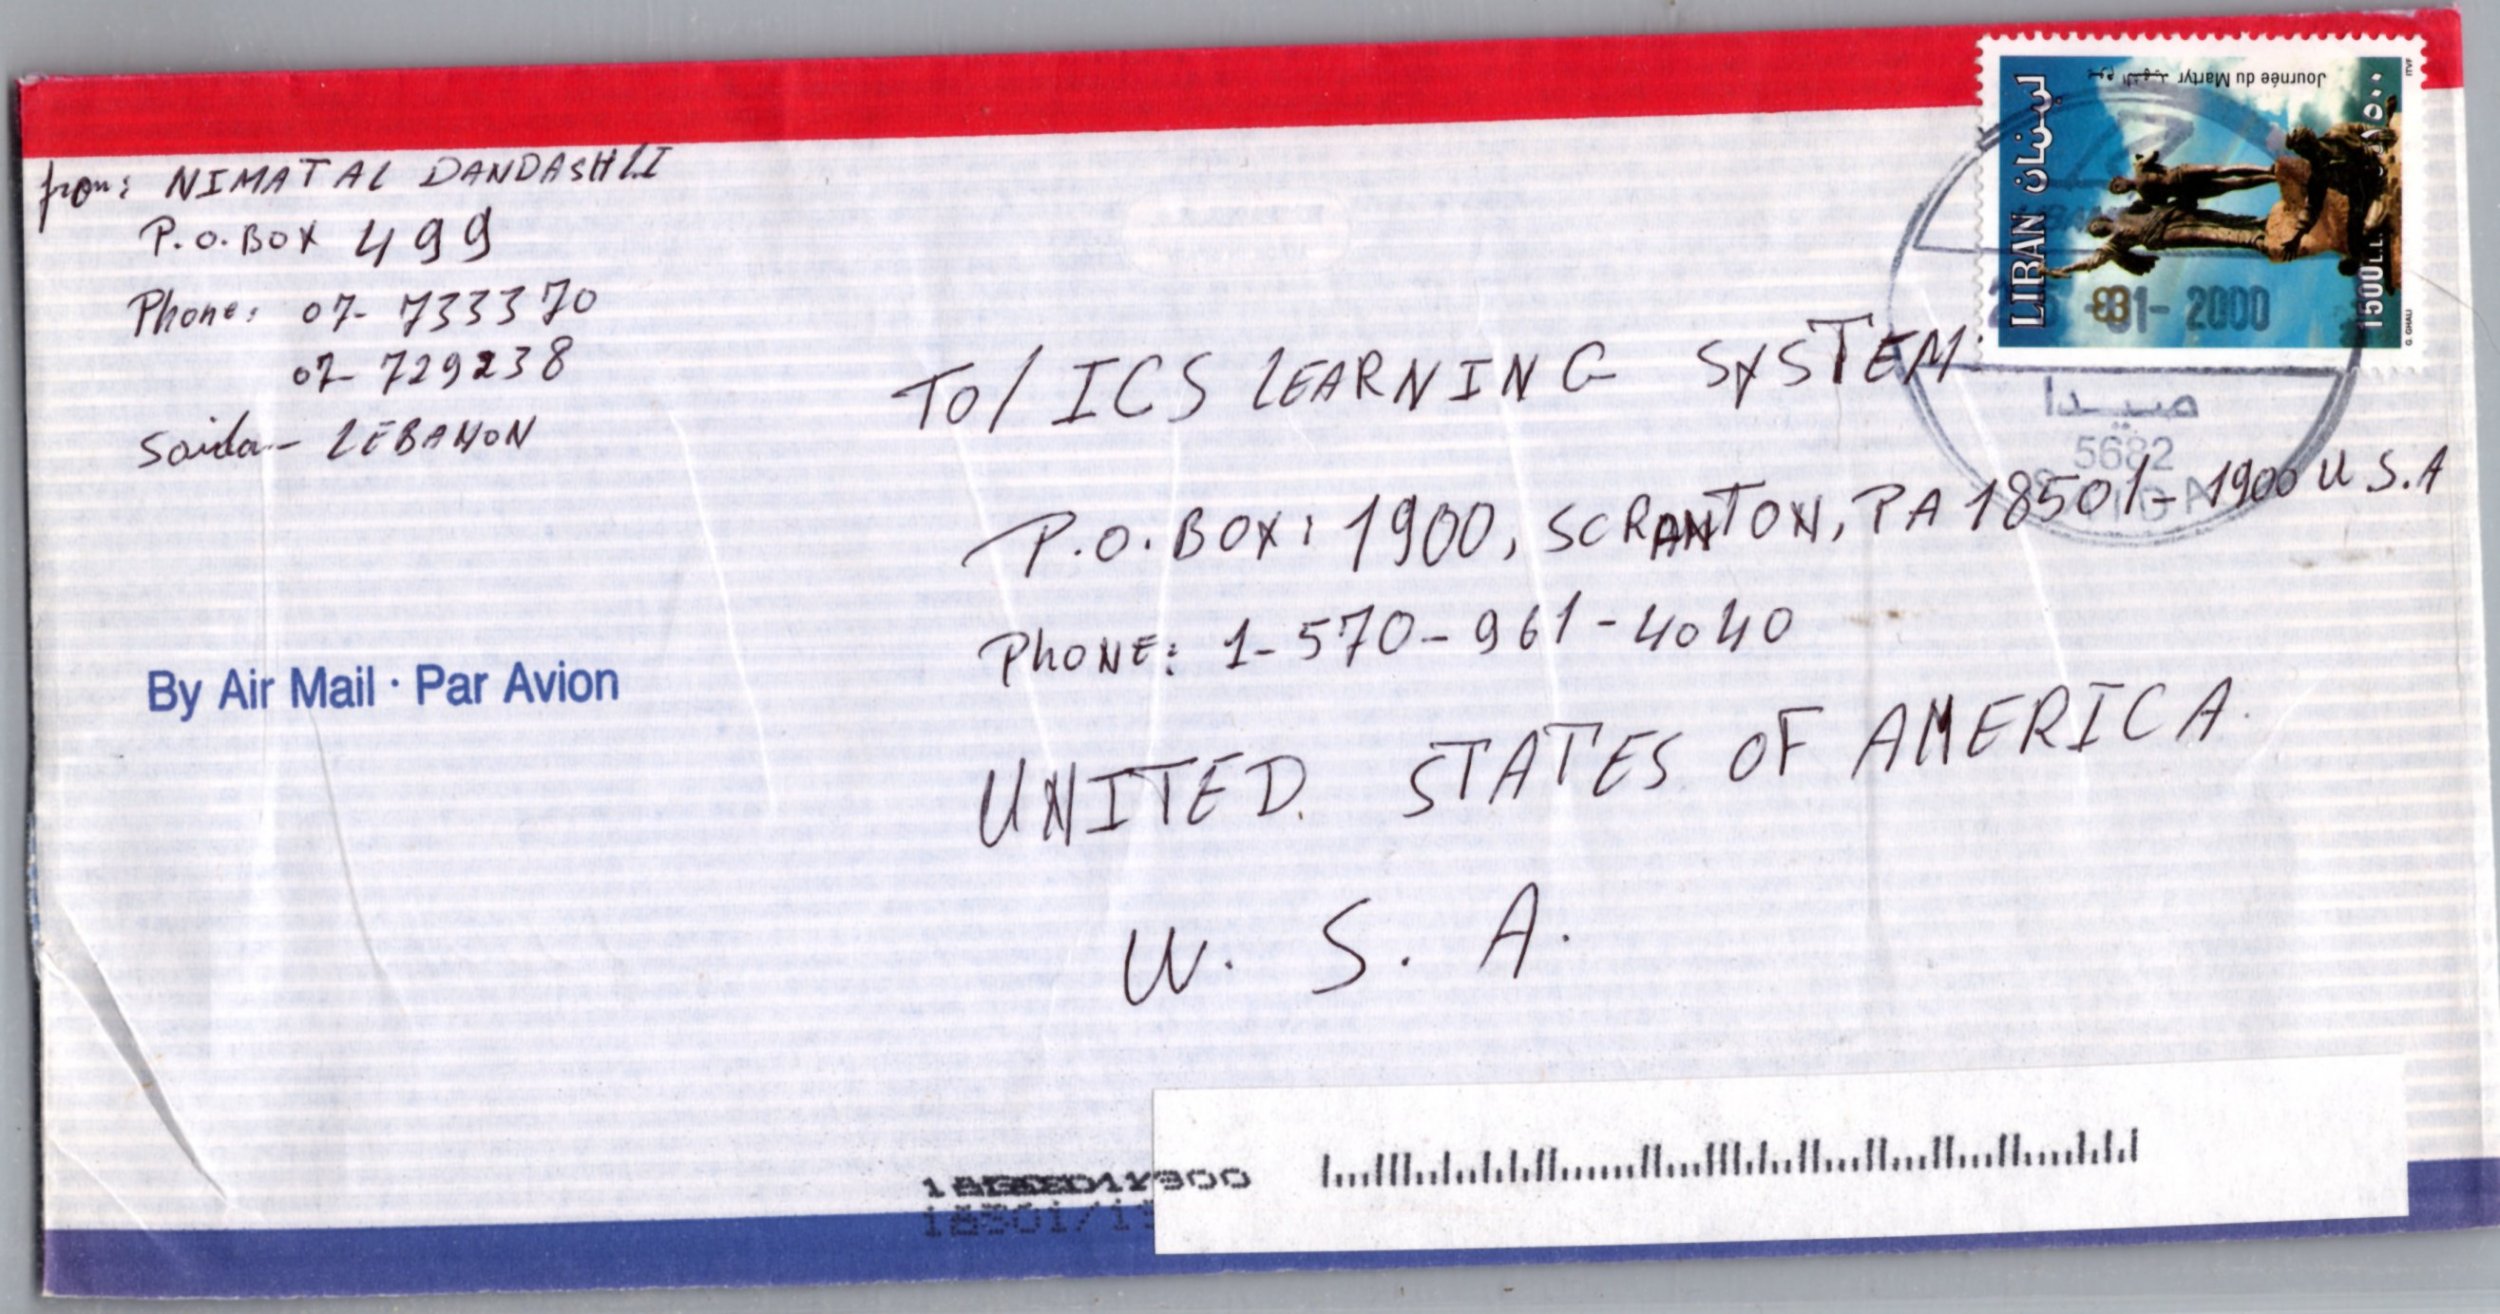 from: NIMAT AL DANDASHLI
P.O.BOX 499
Phone: 07- 733370
07- 729238
Saida - LEBANON
By Air Mail · Par Avion
لبنان
LIBAN
Journée du Martyr
1500
١٥٠٠
ITVF
G. GHALI
01- 2000
صيدا
5682
To/ ICS LEARNING SYSTEM
P.O.BOX: 1900, SCRANTON, PA 18501- 1900 U.S.A
PHONE: 1-570-961-4040
UNITED STATES OF AMERICA.
U. S. A.